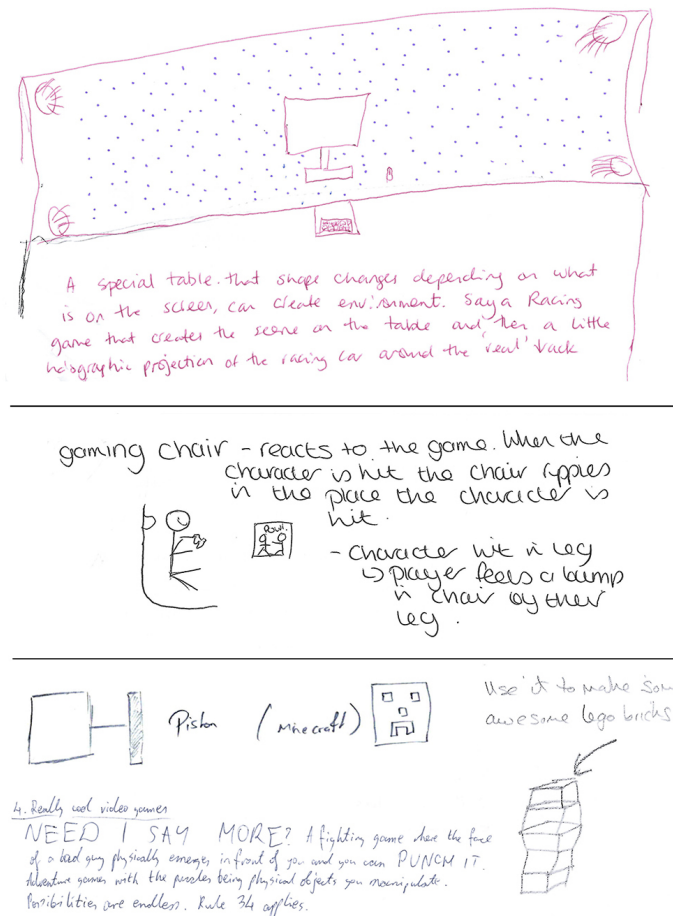 A special table. that shape changes depending on what
is on the screen, can create environment. Say a Racing
game that creates the scene on the table and then a little
holographic projection of the racing car around the 'real' track
gaming chair - reacts to the game. When the
character is hit the chair ripples
in the place the character is
hit.
- character hit in leg
↳ player feels a bump
in chair by their
leg.
Piston (Minecraft)
Use it to make som
awesome lego bricks
4. Really cool video games
NEED I SAY MORE? A fighting game where the face
of a bad guy physically emerges in front of you and you can PUNCH IT.
Adventure games with the puzzles being physical objects you manipulate.
Possibilities are endless. Rule 34 applies.